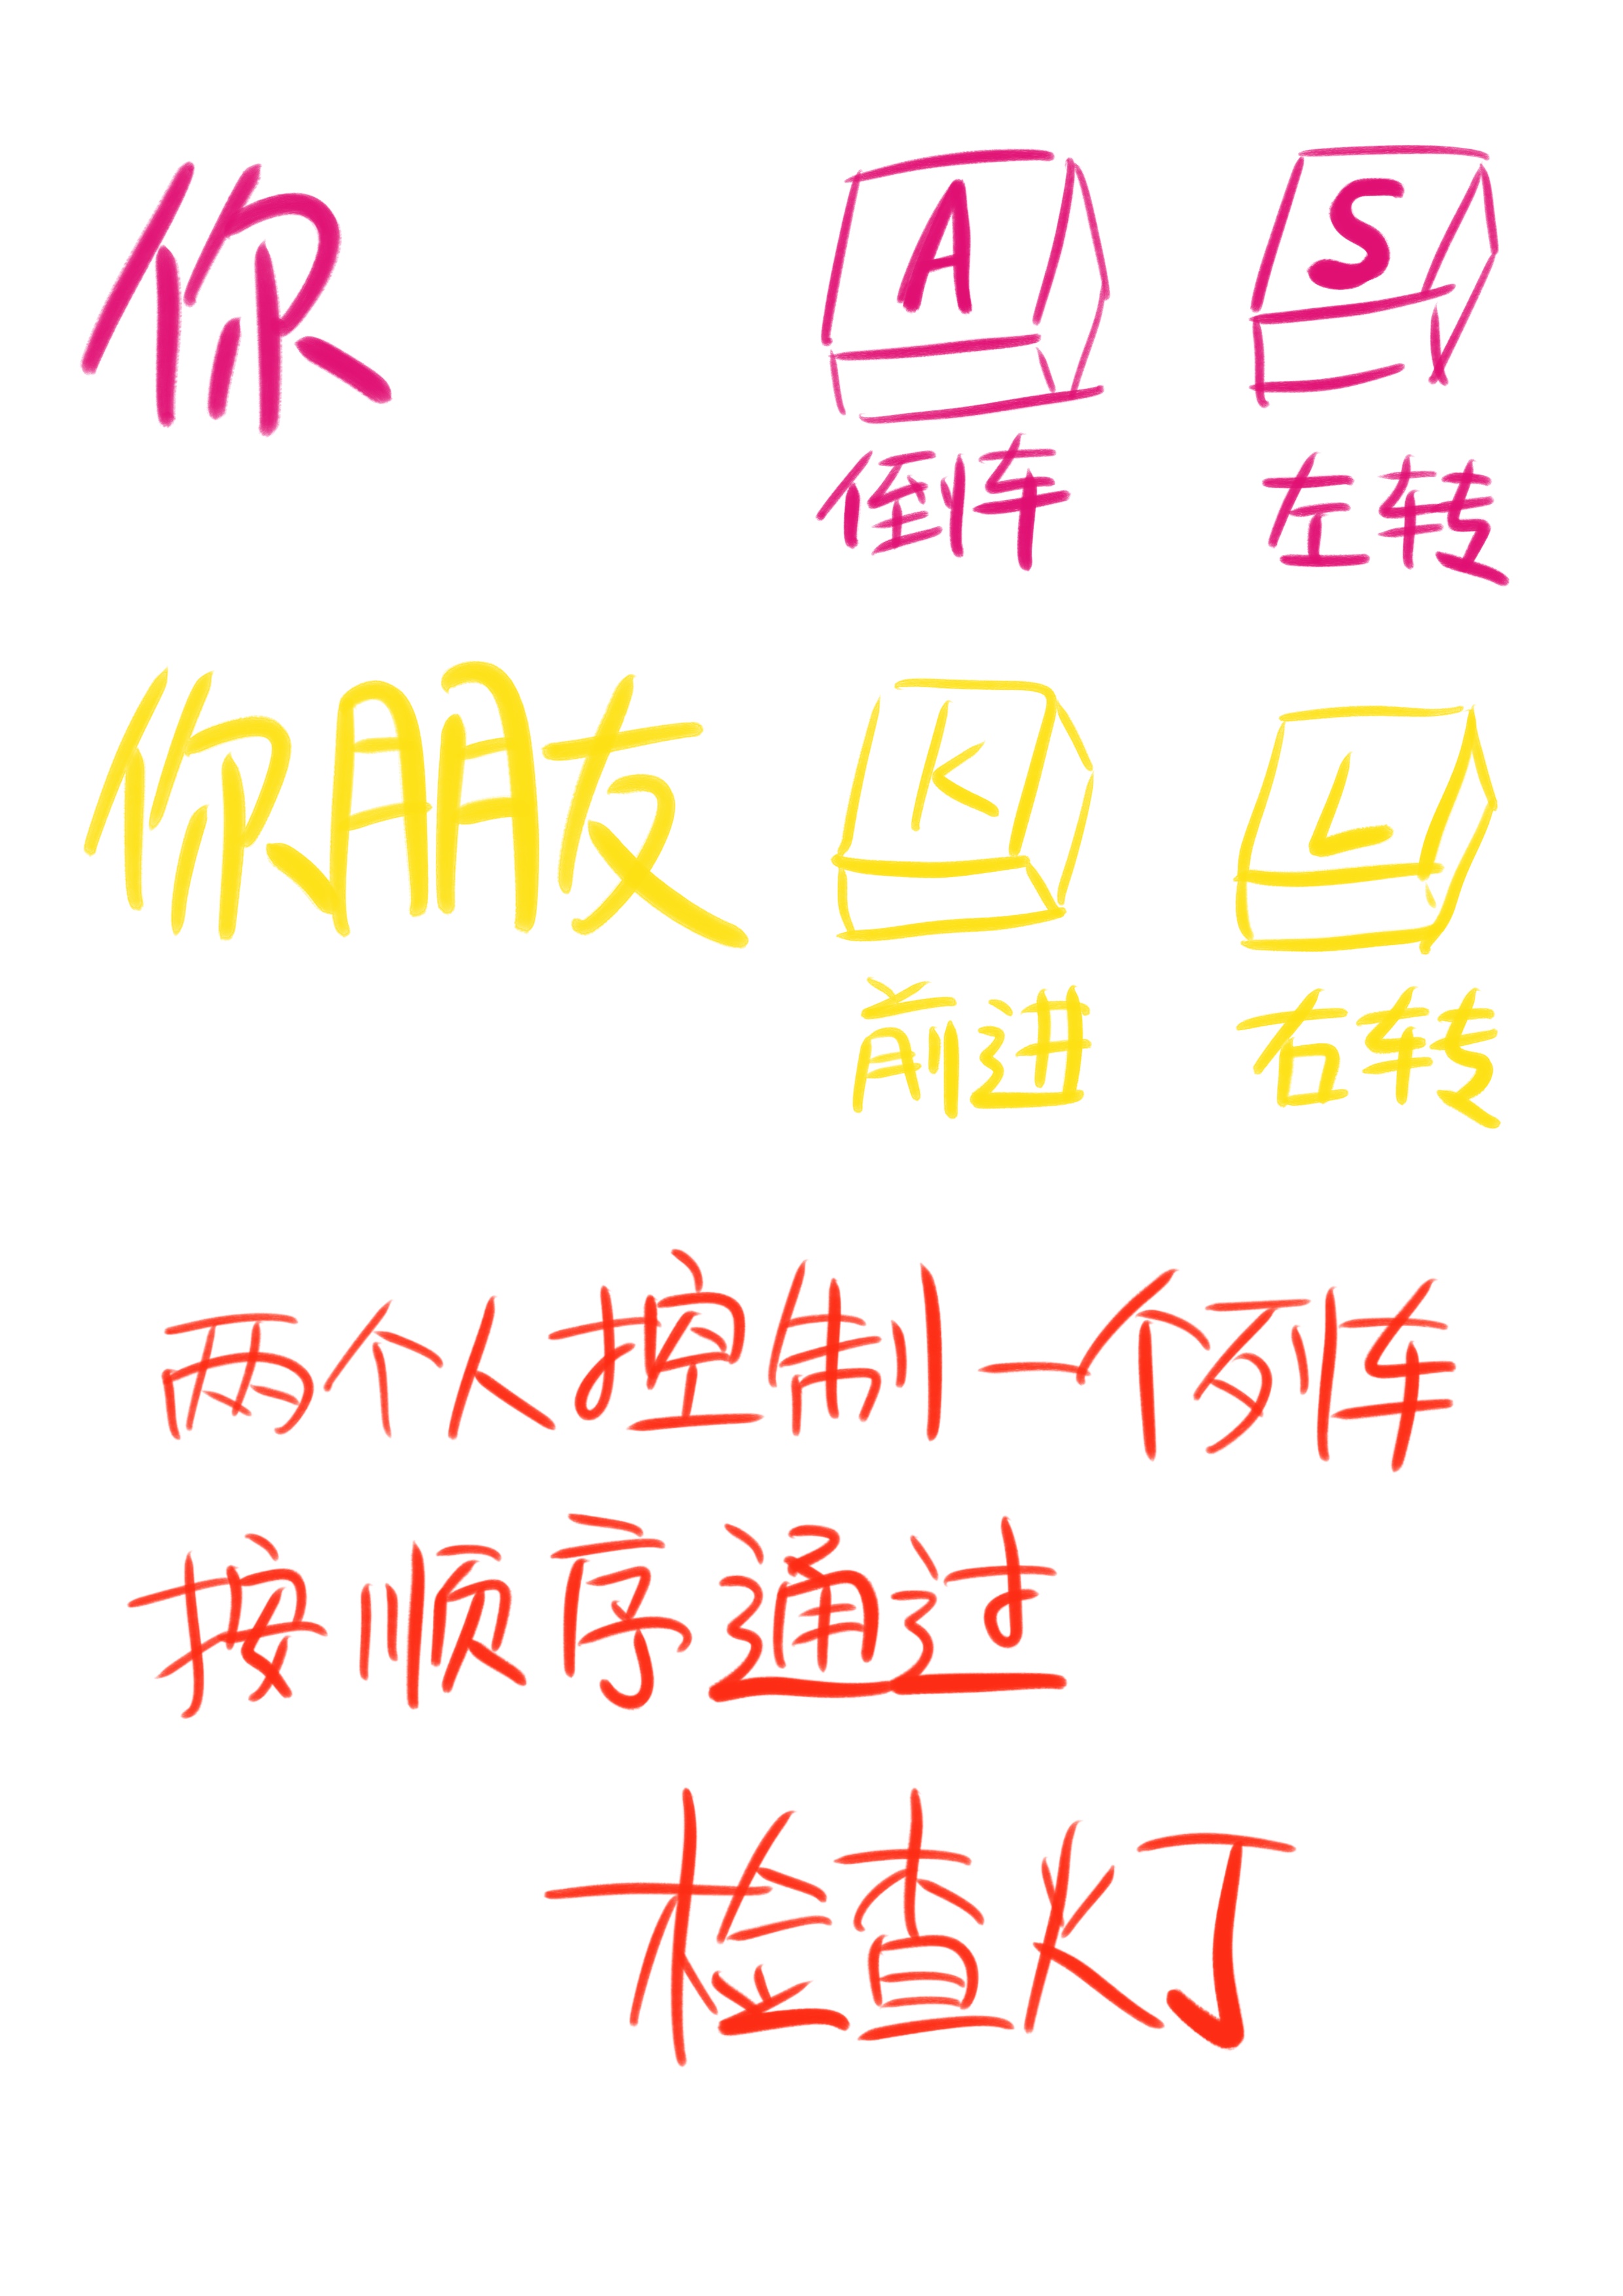 你 A S
倒车 左转
你朋友 K L
前进 右转
两个人控制一个列车
按顺序通过
检查灯